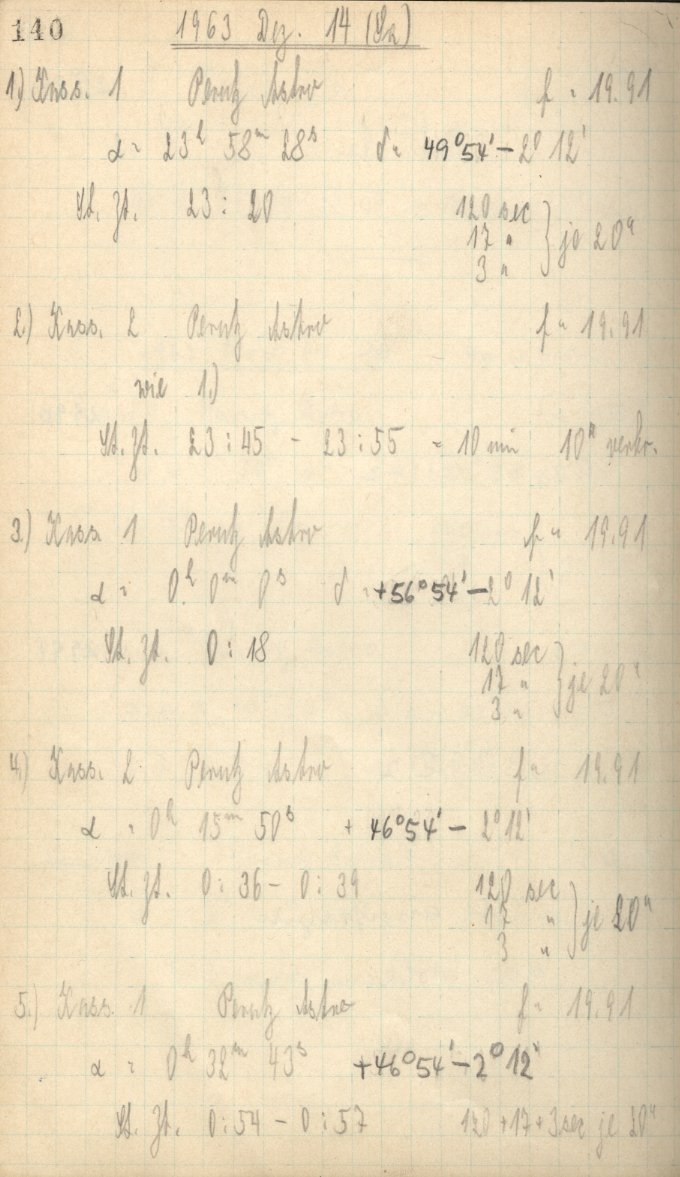 140
1963 Dez. 14 (Sa)
1.) Kass. 1 Perutz Astro f = 19.91
α = 23h 58m 28s δ = 49°54' - 2° 12'
St. Zt. 23 : 20 120 sec
17 "
3 "
} je 20"
2.) Kass. 2 Perutz Astro f = 19.91
wie 1.)
St. Zt. 23 : 45 - 23 : 55 = 10 min 10"
3.) Kass. 1 Perutz Astro f = 19.91
α = 0h 0m 0s δ = +56°54' - 2° 12'
St. Zt. 0 : 18 120 sec
17 "
3 "
} je 20"
4.) Kass. 2 Perutz Astro f = 19.91
α = 0h 15m 50s + 46°54' - 2°12'
St. Zt. 0 : 36 - 0 : 39 120 sec
17 "
3 "
} je 20"
5.) Kass. 1 Perutz Astro f = 19.91
α = 0h 32m 43s +46°54' - 2° 12'
St. Zt. 0 : 54 - 0 : 57 120 + 17 + 3 sec je 20"